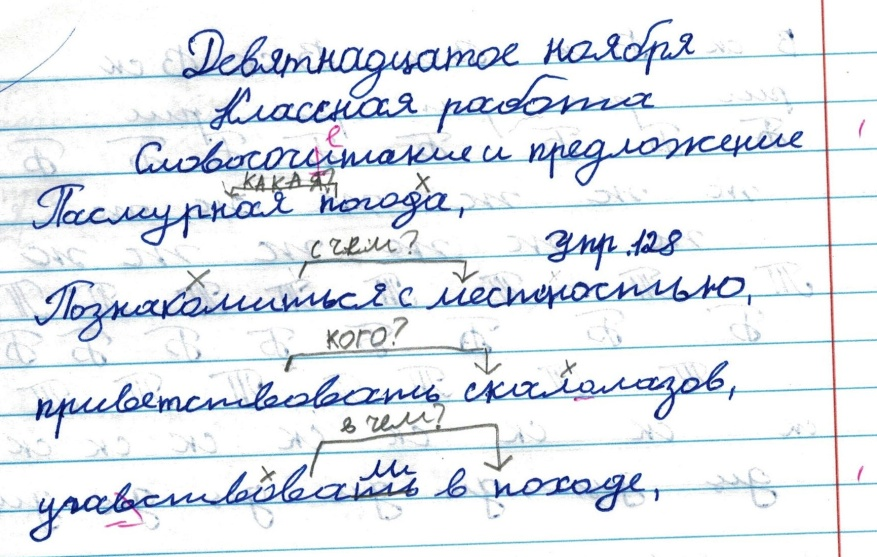 Девятнадцатое ноября
Классная работа
е
Словосочитание и предложение
КАКАЯ? х
Пасмурная погода,
с чем? Упр. 128
х
Познакомиться с местностью,
кого?
х
приветствовать скалолазов,
в чем?
х ли
учавствовать в походе,